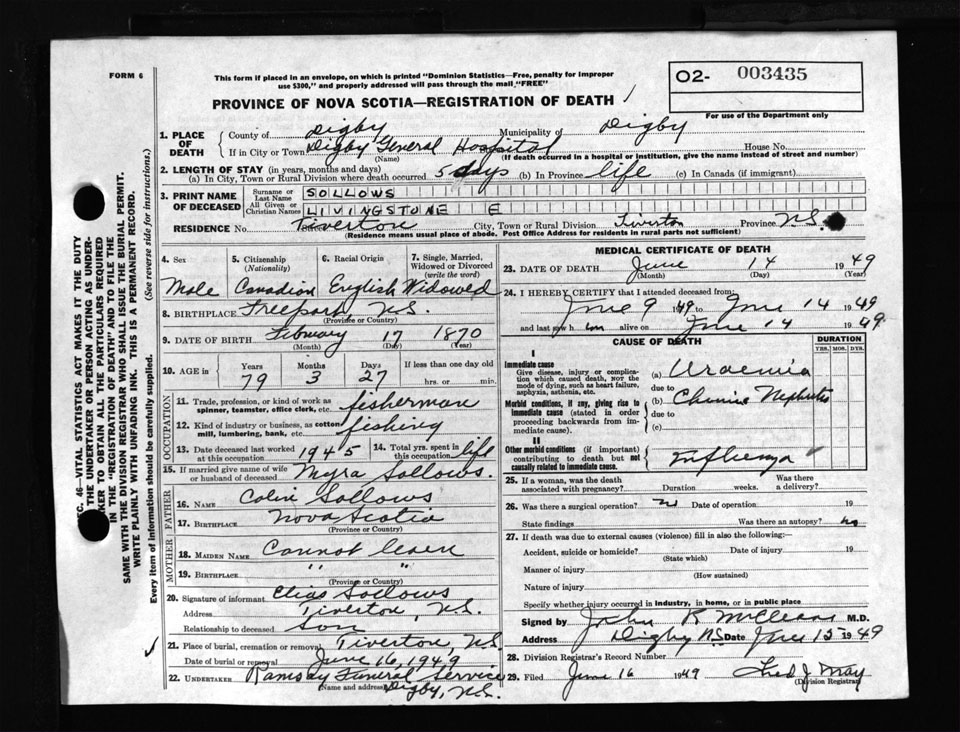 FORM 6
This form if placed in an envelope, on which is printed "Dominion Statistics—Free, penalty for improper
use $300," and properly addressed will pass through the mail "FREE"
O2- 003435
For use of the Department only
PROVINCE OF NOVA SCOTIA—REGISTRATION OF DEATH
1. PLACE OF DEATH
County of Digby Municipality of Digby
If in City or Town Digby General Hospital House No.
(Name) (If death occurred in a hospital or institution, give the name instead of street and number)
2. LENGTH OF STAY (in years, months and days)
(a) In City, Town or Rural Division where death occurred 5 days (b) In Province life (c) In Canada (if immigrant)
3. PRINT NAME OF DECEASED
Surname or Last Name SOLLOWS
All Given or Christian Names LIVINGSTONE E
RESIDENCE No. Tiverton City, Town or Rural Division Tiverton Province N.S.
(Residence means usual place of abode. Post Office Address for residents in rural parts not sufficient)
4. Sex 5. Citizenship (Nationality) 6. Racial Origin 7. Single, Married, Widowed or Divorced (write the word)
Male Canadian English Widowed
8. BIRTHPLACE Freeport, N.S.
(Province or Country)
9. DATE OF BIRTH February 17 1870
(Month) (Day) (Year)
10. AGE in Years Months Days If less than one day old
79 3 27 hrs. or min.
OCCUPATION
11. Trade, profession or kind of work as spinner, teamster, office clerk, etc. fisherman
12. Kind of industry or business, as cotton mill, lumbering, bank, etc. fishing
13. Date deceased last worked at this occupation 1945 14. Total yrs. spent in this occupation life
15. If married give name of wife or husband of deceased Myra Sollows.
FATHER
16. Name Colin Sollows
17. Birthplace Nova Scotia
(Province or Country)
MOTHER
18. Maiden Name Cannot learn
19. Birthplace " "
(Province or Country)
20. Signature of informant Elias Sollows
Address Tiverton, N.S.
Relationship to deceased Son
21. Place of burial, cremation or removal Tiverton, N.S.
Date of burial or removal June 16, 1949
22. UNDERTAKER Ramsay Funeral Service
(Name and address) Digby, N.S.
MEDICAL CERTIFICATE OF DEATH
23. DATE OF DEATH June 14 1949
(Month) (Day) (Year)
24. I HEREBY CERTIFY that I attended deceased from:
June 9 1949 to June 14 1949
and last saw him alive on June 14 1949
CAUSE OF DEATH
DURATION
YRS. MOS. DYS.
I
Immediate cause
Give disease, injury or complication which caused death, NOT the mode of dying, such as heart failure, asphyxia, asthenia, etc.
(a) Uraemia
due to
Morbid conditions, if any, giving rise to immediate cause (stated in order proceeding backwards from immediate cause).
(b) Chronic Nephritis
due to
(c)
II
Other morbid conditions (if important) contributing to death but not causally related to immediate cause.
Influenza
25. If a woman, was the death associated with pregnancy? Duration weeks. Was there a delivery?
26. Was there a surgical operation? no Date of operation 19
State findings Was there an autopsy? no
27. If death was due to external causes (violence) fill in also the following:
Accident, suicide or homicide? Date of injury 19
(State which)
Manner of injury
(How sustained)
Nature of injury
Specify whether injury occurred in industry, in home, or in public place
Signed by John R McCleave M.D.
Address Digby N.S. Date June 15 1949
28. Division Registrar's Record Number
29. Filed June 16 1949 Fred J. May
(Division Registrar)
SEC. 46—VITAL STATISTICS ACT MAKES IT THE DUTY
THE UNDERTAKER OR PERSON ACTING AS UNDER-
TAKER TO OBTAIN ALL THE PARTICULARS REQUIRED
IN THE "REGISTRATION OF DEATH" AND TO FILE THE
SAME WITH THE DIVISION REGISTRAR WHO SHALL ISSUE THE BURIAL PERMIT.
WRITE PLAINLY WITH UNFADING INK. THIS IS A PERMANENT RECORD.
Every item of information should be carefully supplied. (See reverse side for instructions.)